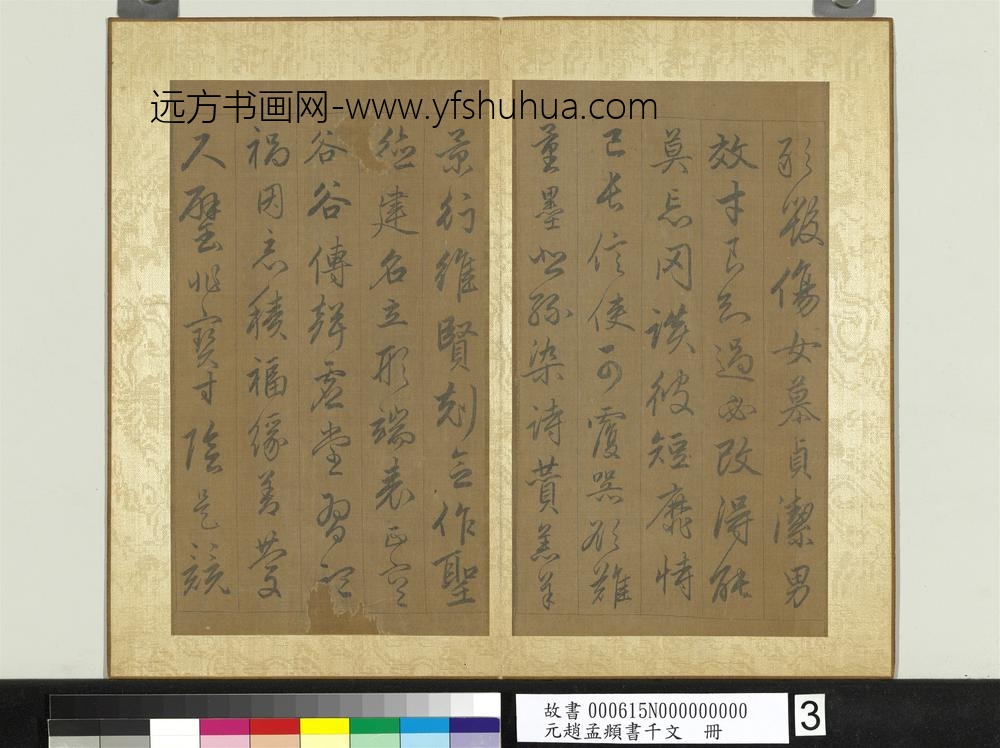 远方书画网-www.yfshuhua.com
敢毀傷女慕貞潔男
效才良知過必改得能
莫忘罔談彼短靡恃
己長信使可覆器欲難
量墨悲絲染詩贊羔羊
景行維賢剋念作聖
德建名立形端表正空
谷谷傳聲虛堂習聽
禍因惡積福緣善慶
尺璧非寶寸陰是競
故書 000615N000000000
元趙孟頫書千文 冊
3